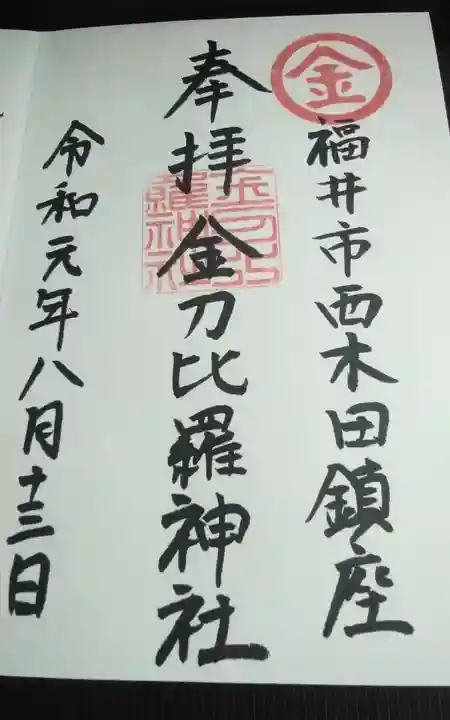 金
福井市西木田鎮座
奉拝 金刀比羅神社
金刀比
羅神社
令和元年八月十三日